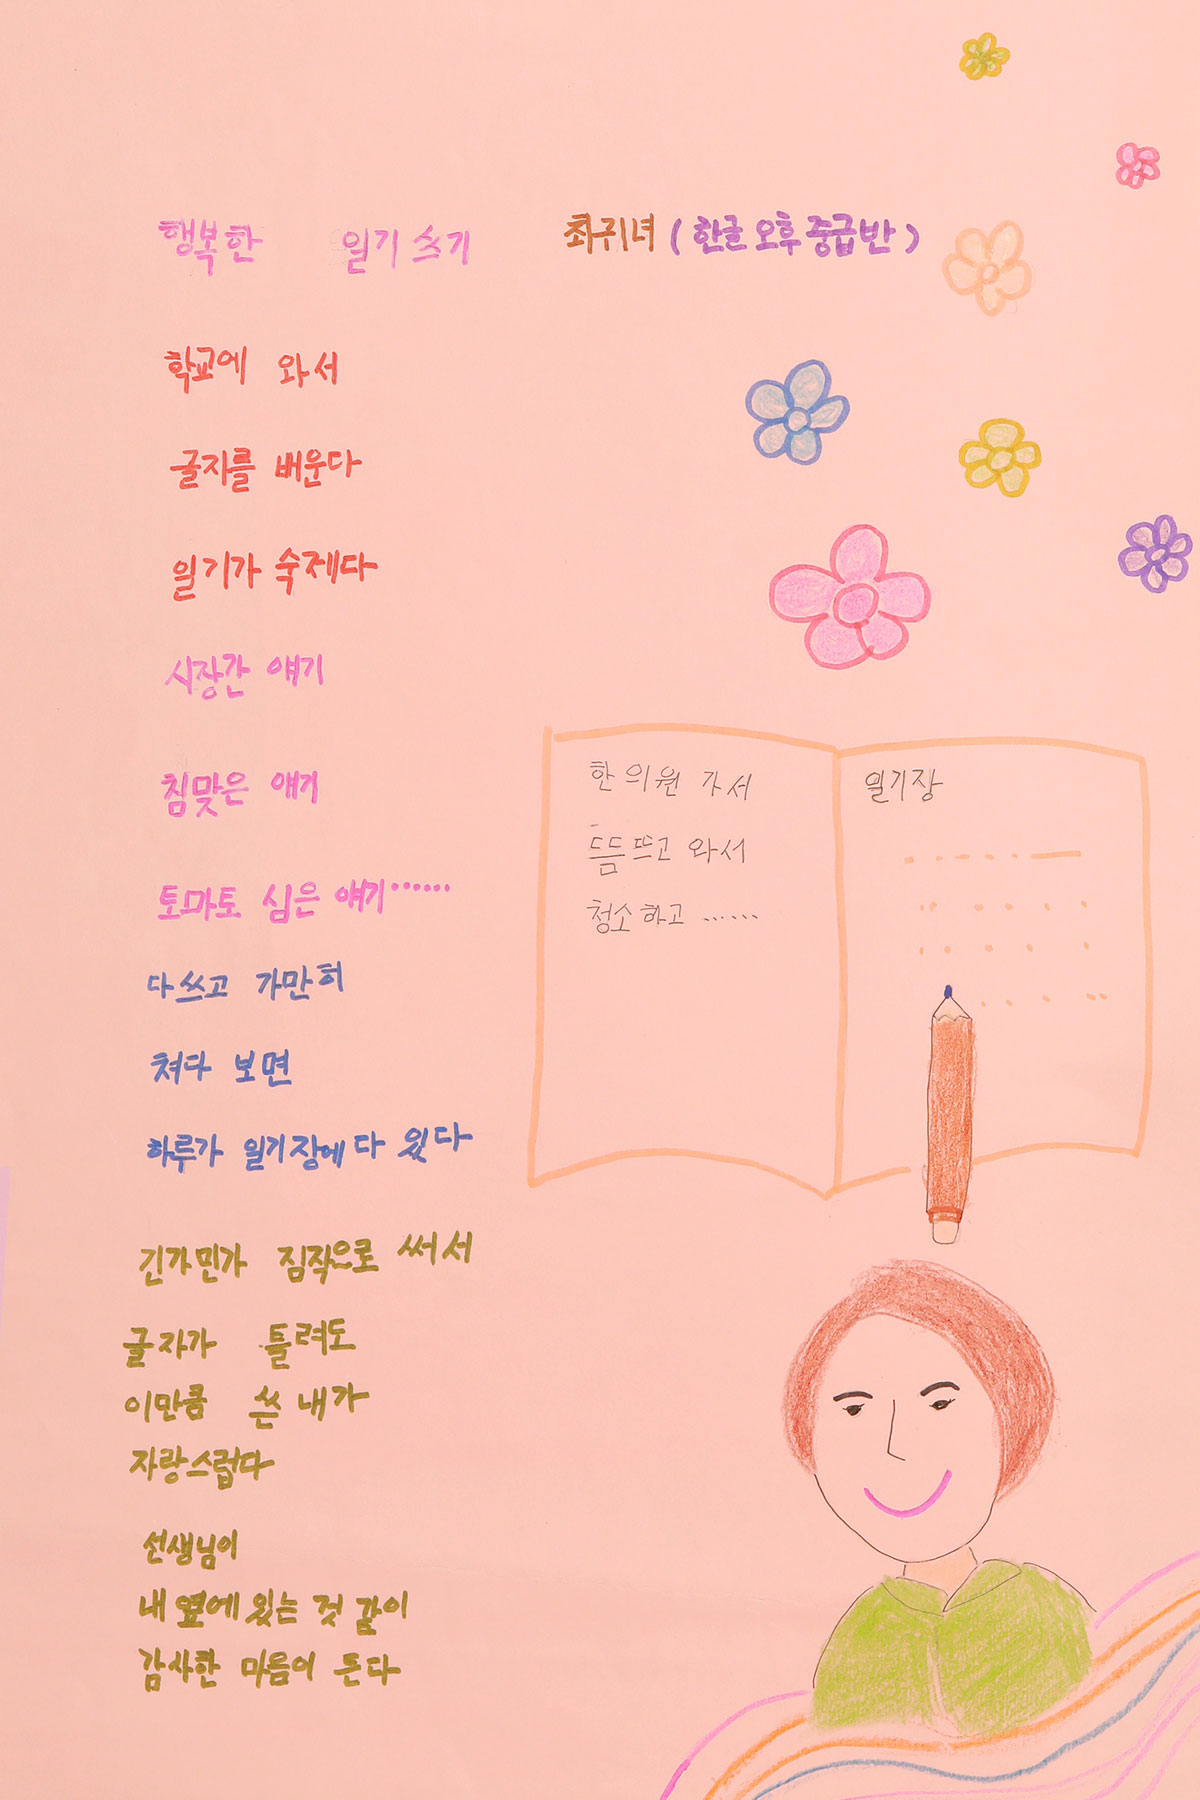 행복한 일기쓰기 최귀녀 (한글 오후 중급반)
학교에 와서
글자를 배운다
일기가 숙제다
시장간 얘기
침맞은 얘기
토마토 심은 얘기······
다쓰고 가만히
쳐다 보면
하루가 일기장에 다 있다
긴가민가 짐작으로 써서
글자가 틀려도
이만큼 쓴 내가
자랑스럽다
선생님이
내 옆에 있는 것 같이
감사한 마음이 든다
한의원 가서
뜸뜨고 와서
청소하고 ······
일기장